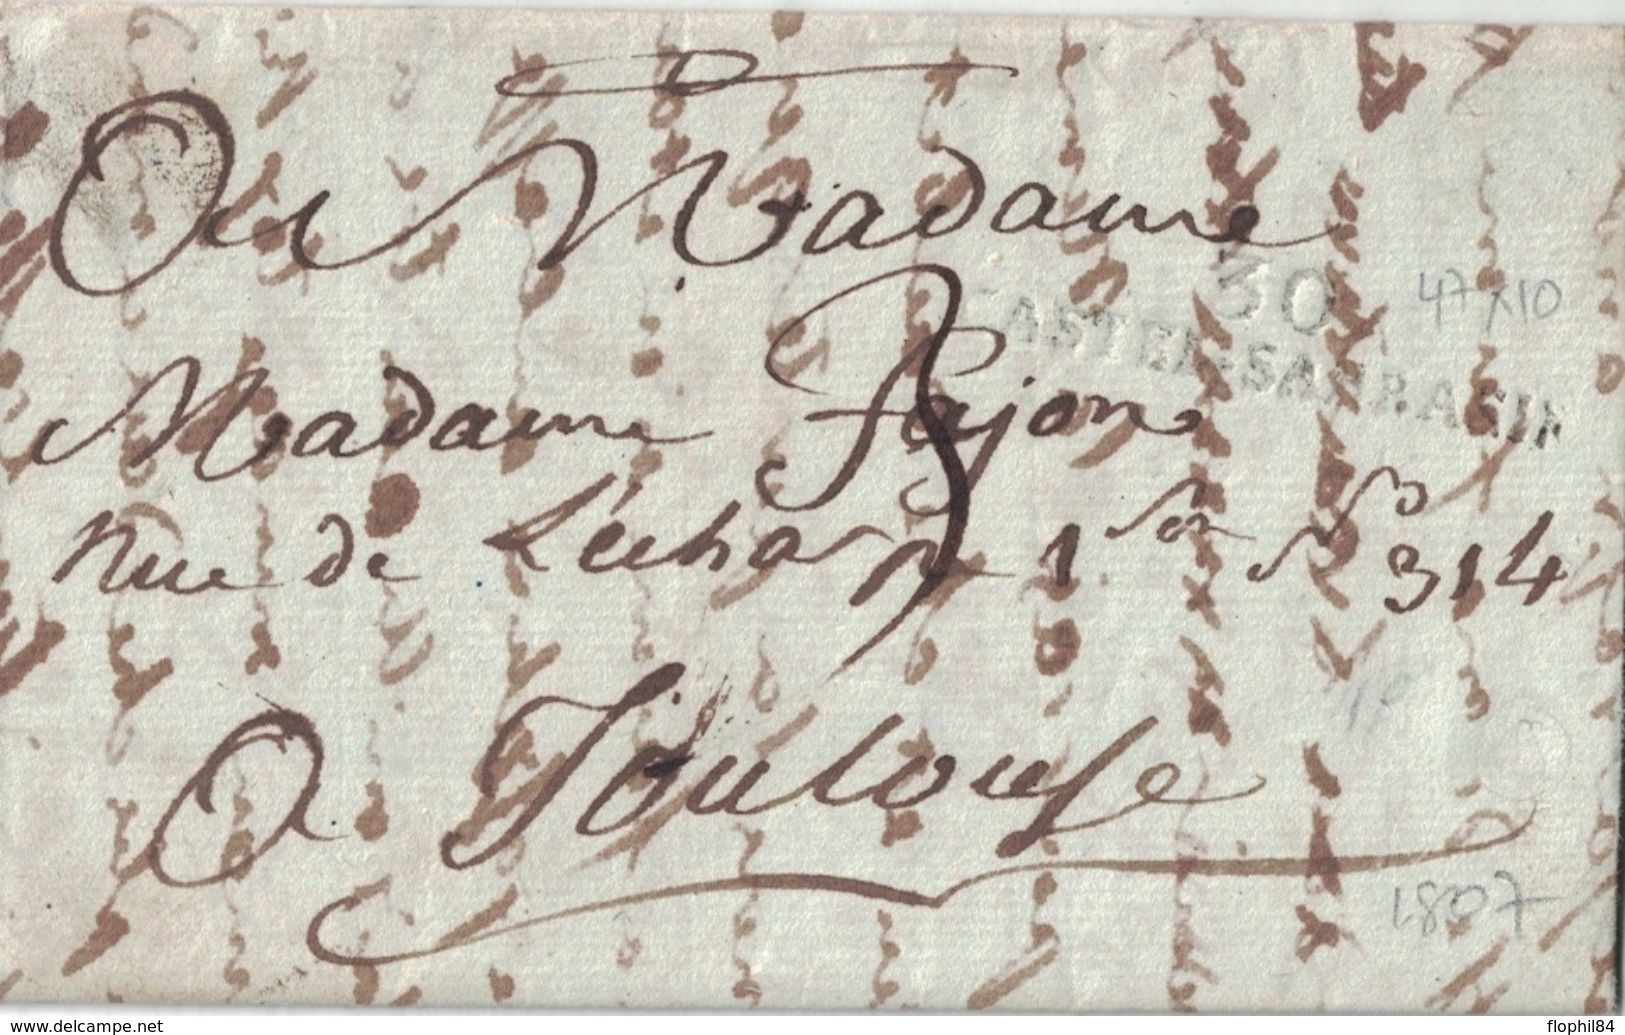 A Madame
30
CASTEL-SARRASIN
47 x10
Madame Fajon
Rue de Lecharpe 1.son No 314
A Toulouse
1807
www.delcampe.net
flophil84